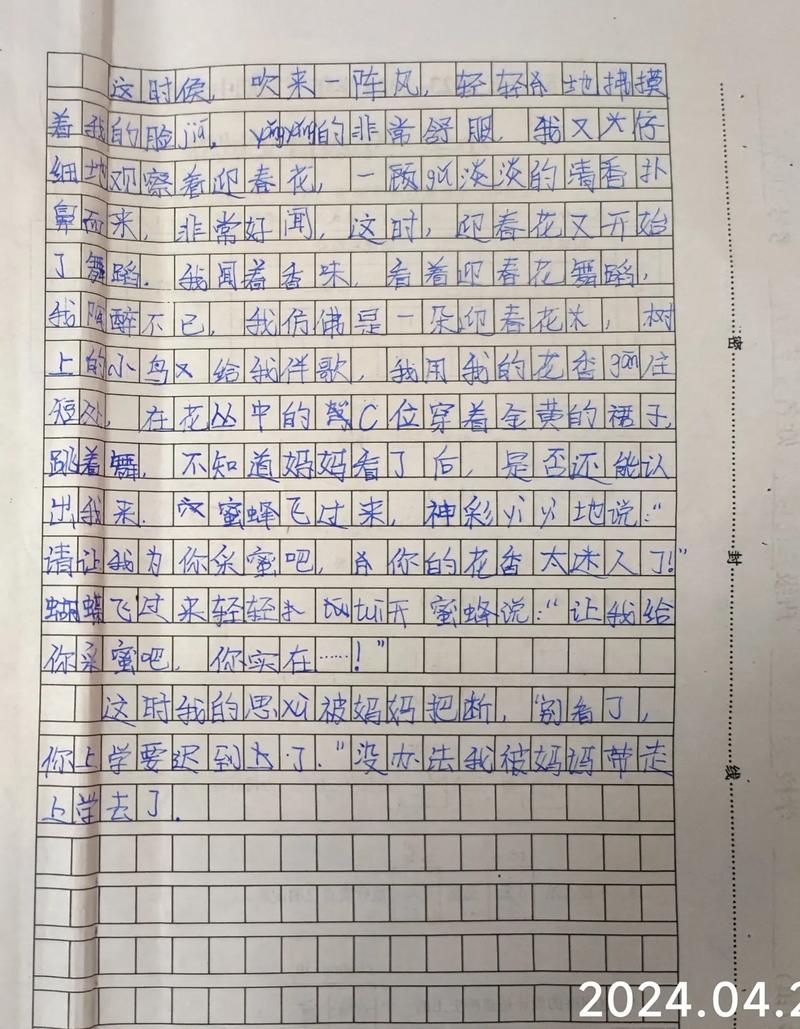 这时候，吹来一阵风，轻轻地拂摸
着我的脸jiá，yǎngyǎng的非常舒服，我又仔
细地观察着迎春花，一顾gǔ淡淡的清香扑
鼻而来，非常好闻，这时，迎春花又开始
了舞蹈。我闻着香味，看着迎春花舞蹈，
我陶醉不已，我仿佛是一朵迎春花，树
上的小鸟又给我伴歌，我用我的花香gǎn住
短处，在花丛中的C位穿着金黄的裙子，
跳着舞，不知道妈妈看了后，是否还能认
出我来。蜜蜂飞过来，神彩yì yì地说：“
请让我为你采蜜吧，你的花香太迷人了！”
蝴蝶飞过来轻轻tuī开蜜蜂说：“让我给
你采蜜吧，你实在……！”
这时我的思xù被妈妈把断，“别看了，
你上学要迟到了。”没办法我被妈妈带走
上学去了。
密
封
线
2024.04.2